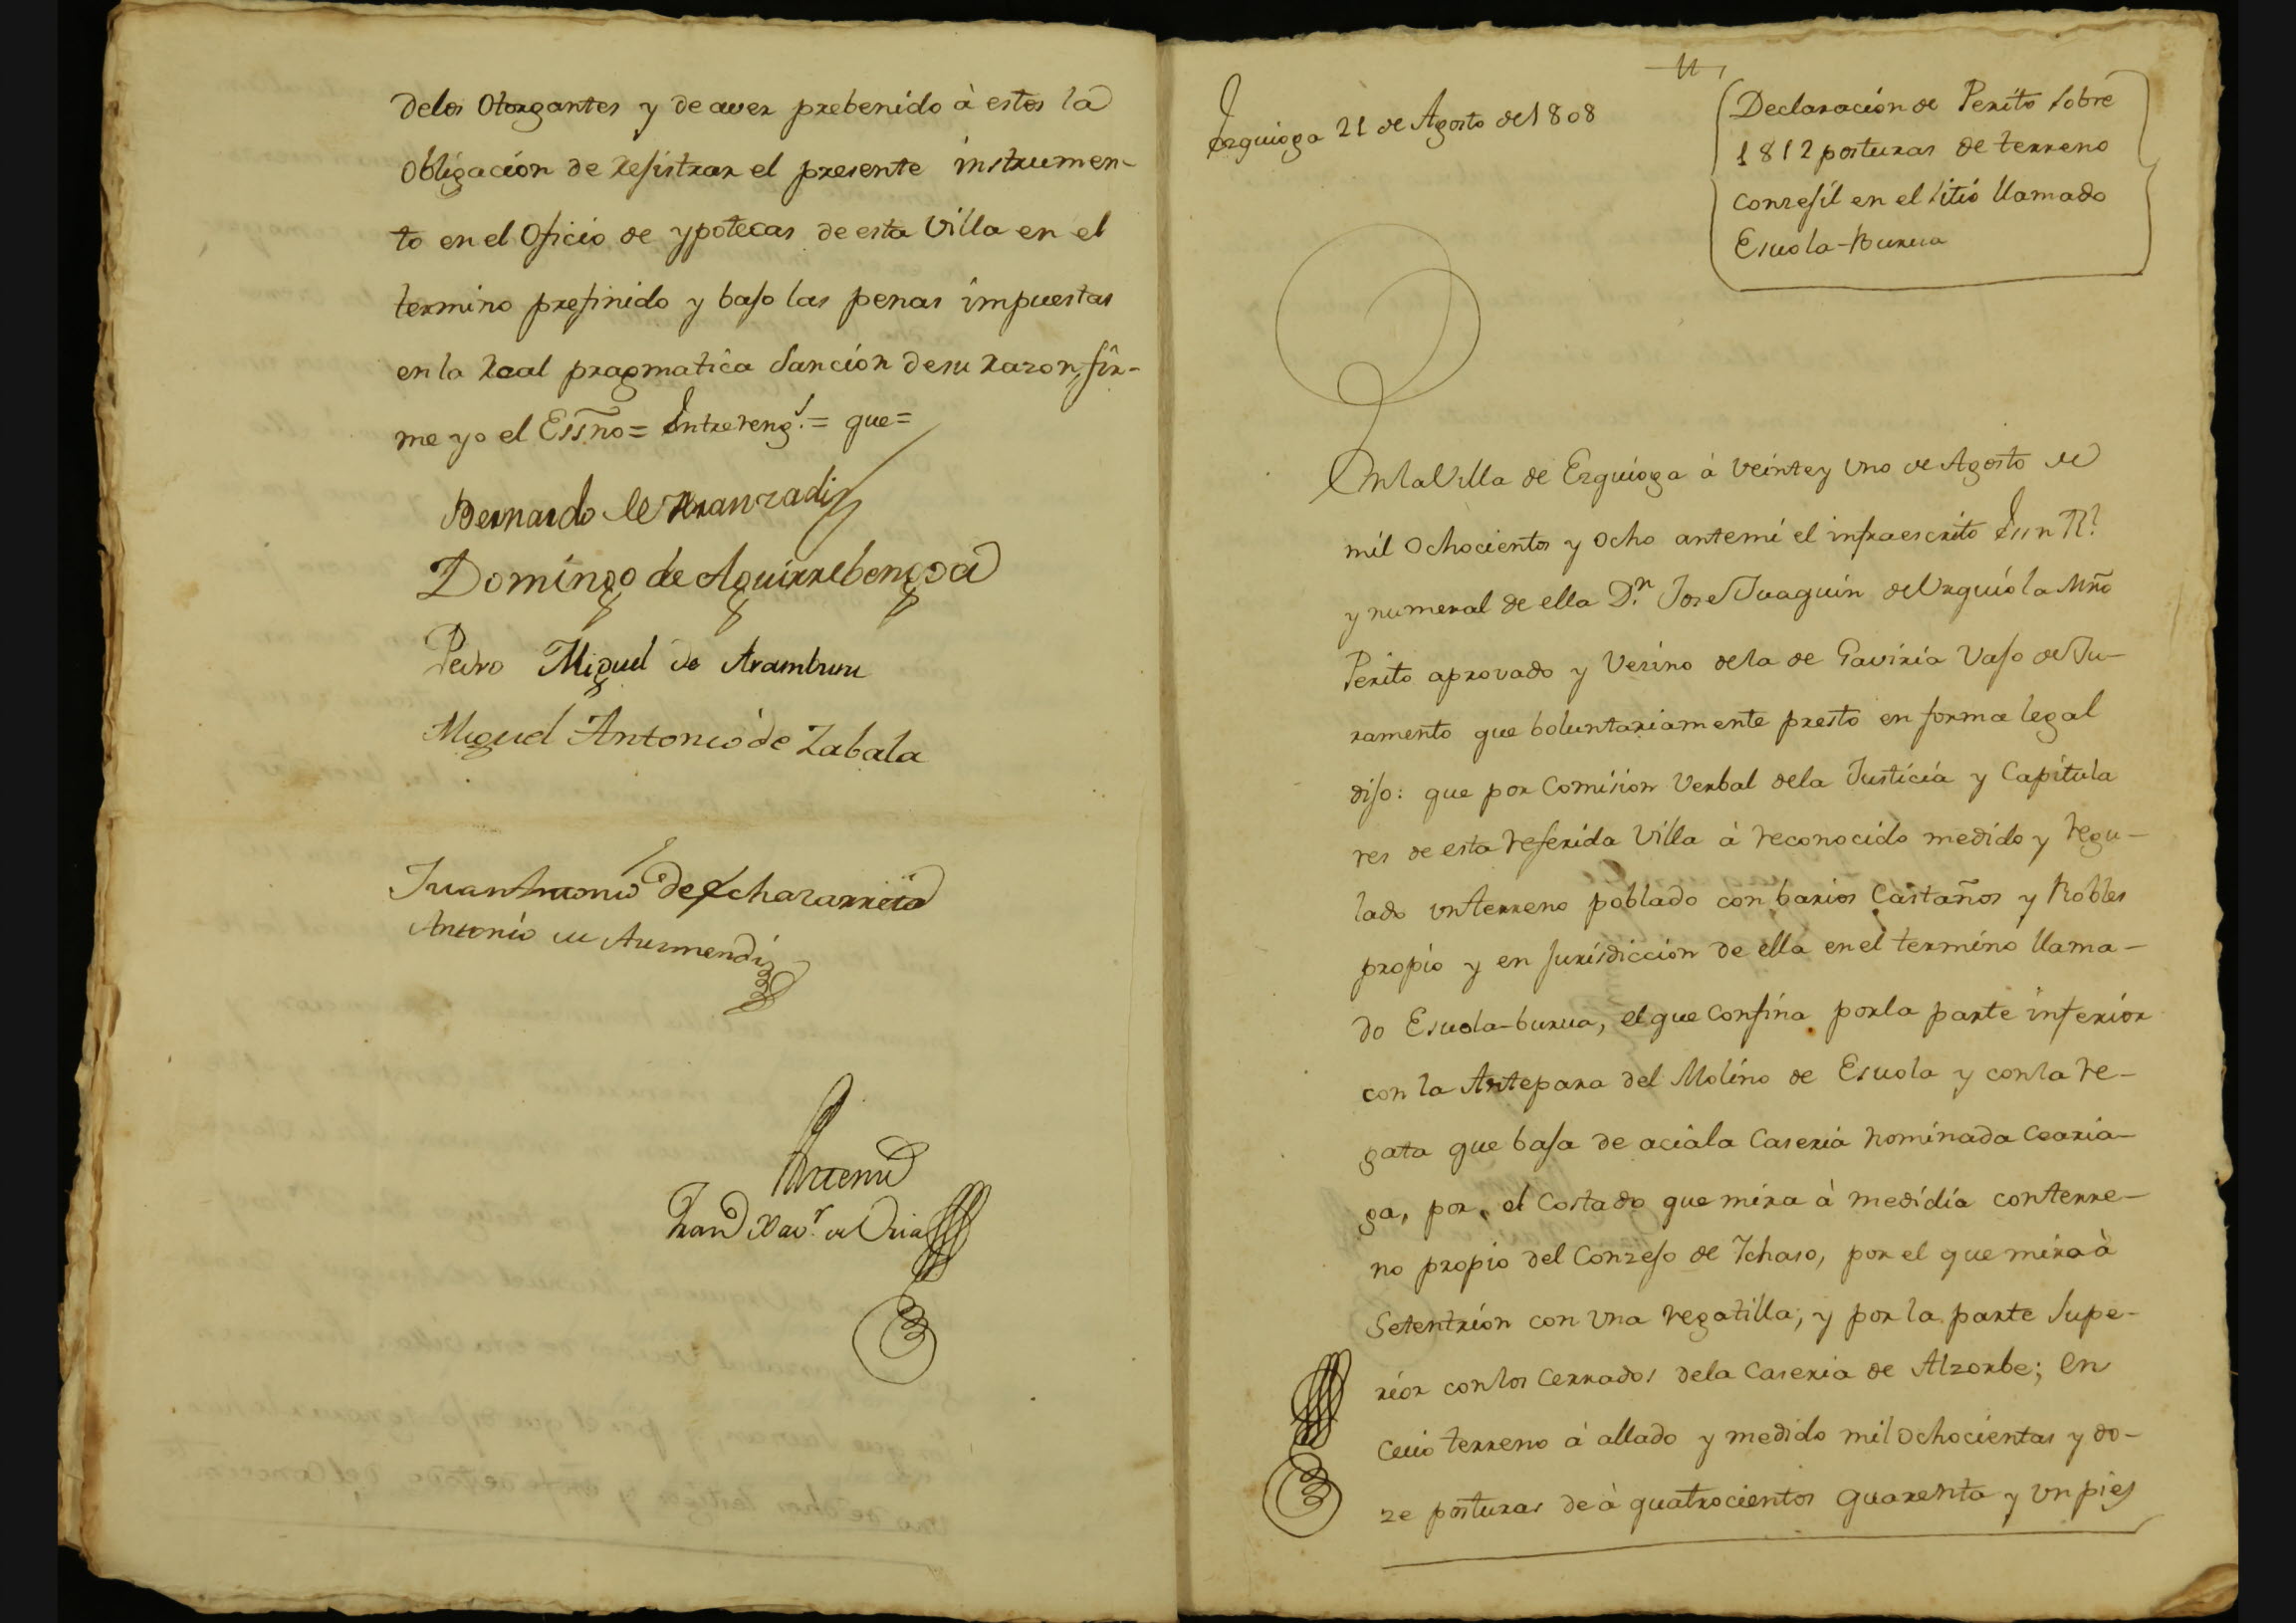 delos Otorgantes y de aver prebenido à estos la
Obligación de Resistrar el presente instrumen-
to en el Oficio de ypotecas de esta Villa en el
termino prefinido y bajo las penas impuestas
en la Real pragmatica Sanción de su razon, fir-
me yo el Essno = Entrereng.s = que =
Bernardo de Aranzadi
Domingo de Aguirrebengoa
Pedro Miguel de Aramburu
Miguel Antonio de Zabala
Juan Antonio de Echazarreta
Antonio de Aurmendi
Antemi
Fran.co Xav.r de Oria
Ezquioga 21 de Agosto de 1808
Declaración de Perito sobre
1812 posturas de terreno
conzejil en el sitio llamado
Esuola-Burua
En la Villa de Ezquioga à veinte y uno de Agosto de
mil Ochocientos y Ocho ante mi el infraescrito Essn R.l
y numeral de ella D.n Jose Juaquin de Urquiola Mño
Perito aprovado y Vezino de la de Gaviria Vajo de Ju-
ramento que boluntariamente presto en forma legal
dijo: que por Comision Verbal de la Justicia y Capitula
res de esta referida Villa à reconocido medido y regu-
lado un terreno poblado con barios Castaños y Robles
propio y en jurisdicción de ella en el termino llama-
do Esuola-burua, el que Confina por la parte inferior
con la Antepara del Molino de Esuola y con la re-
gata que baja de acia la Caseria nominada Cearia-
ga, por el Costado que mira à medidia con terre-
no propio del Conzejo de Ichaso, por el que mira à
Setentrión con una regatilla; y por la parte Supe-
rior con los Cerrados de la Caseria de Alzorbe; en
cuio terreno à allado y medido mil ochocientas y do-
ze posturas de à quatrocientos quarenta y un pies